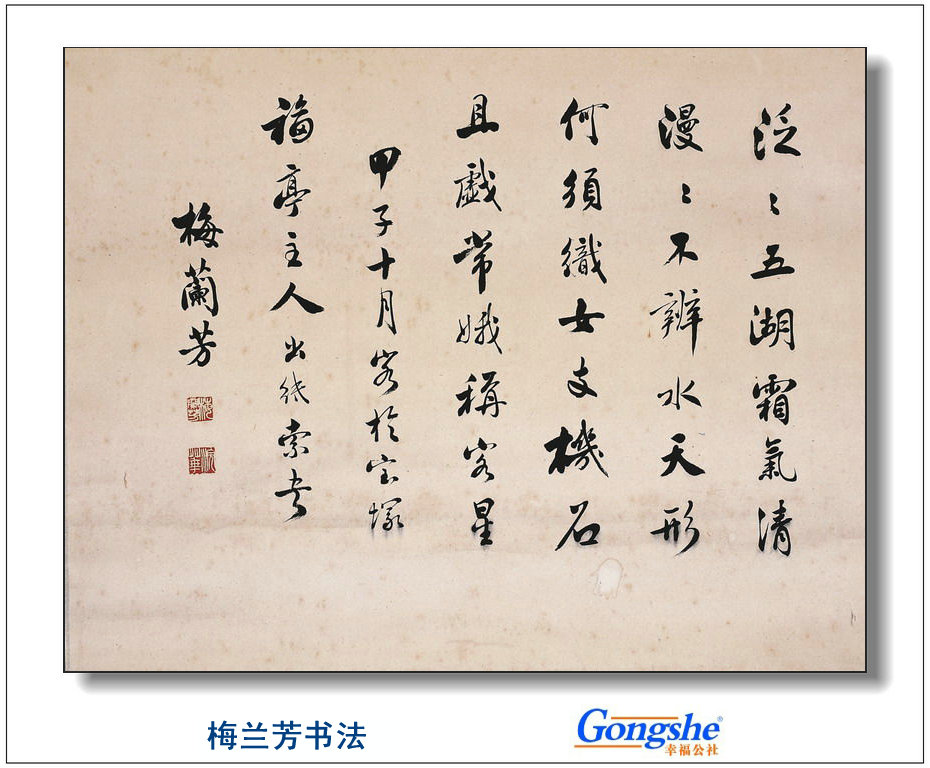 泛〻五湖霜氣清
漫〻不辨水天形
何須織女支機石
且戯常娥稱客星
甲子十月客於宝塚
福亭主人出紙索書
梅蘭芳
梅兰芳书法
Gongshe®
幸福公社